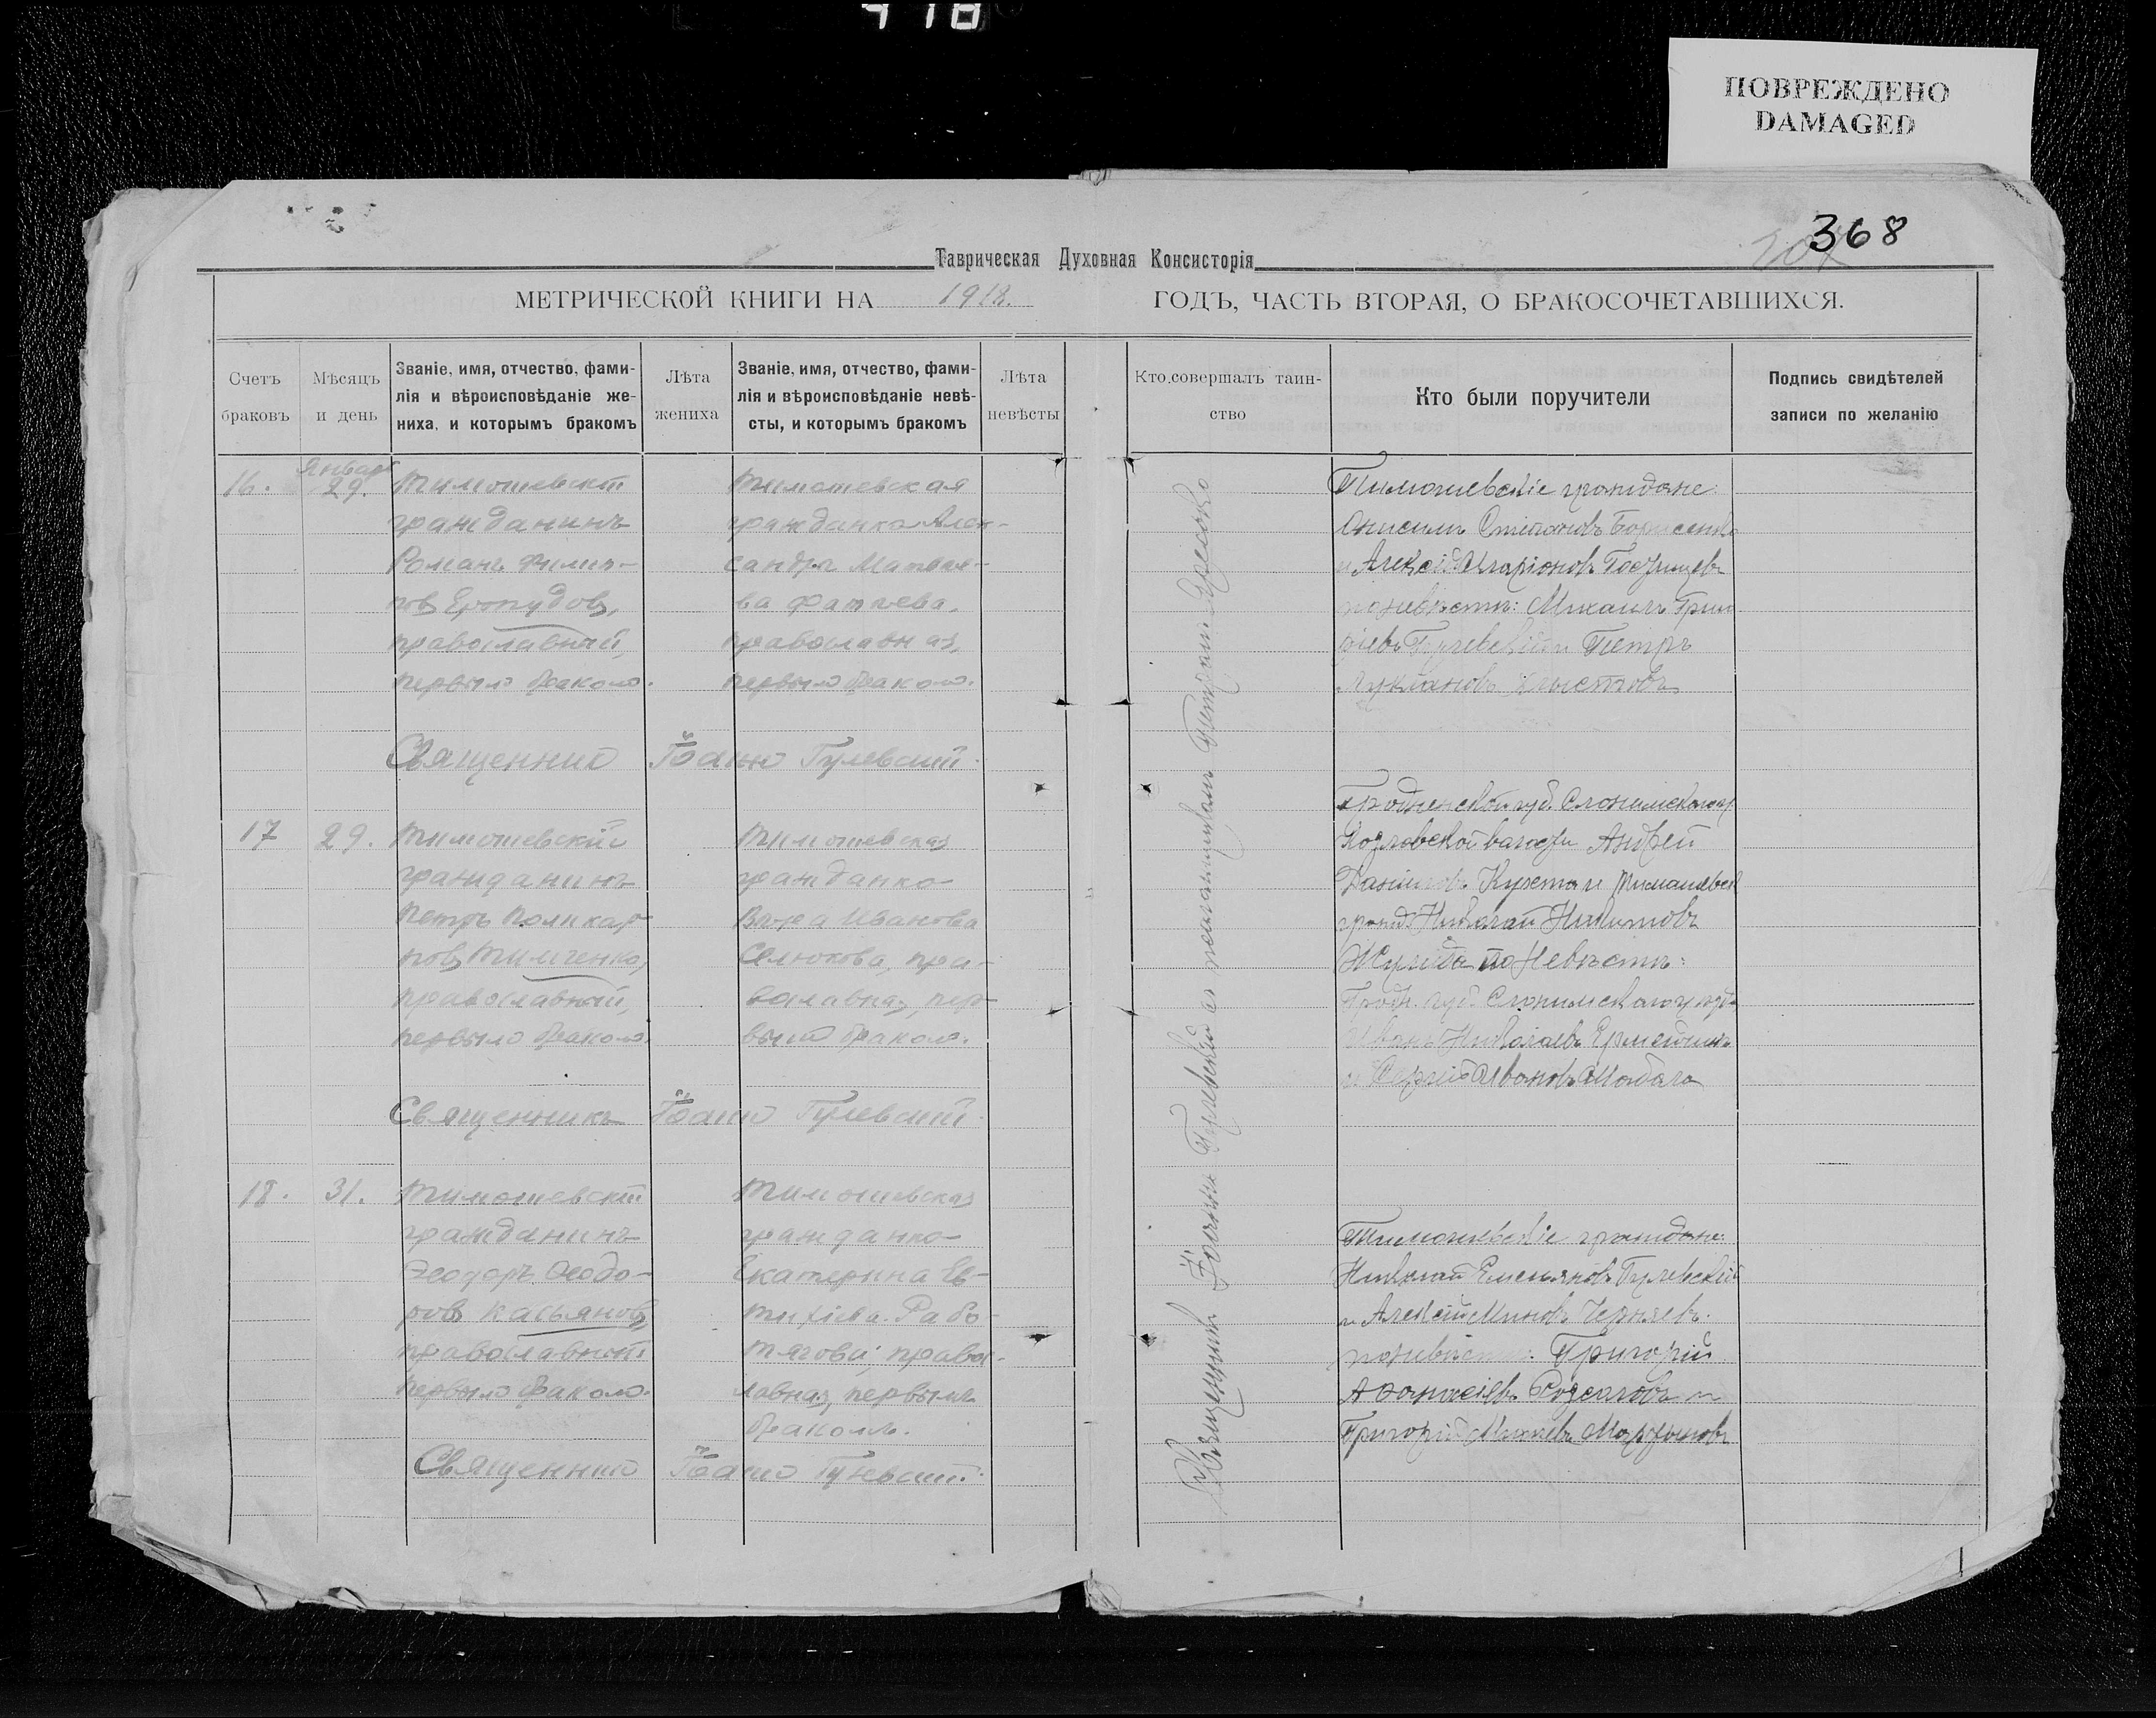 418
ПОВРЕЖДЕНО
DAMAGED
368
Таврическая Духовная Консисторія
МЕТРИЧЕСКОЙ КНИГИ НА 1918. ГОДЪ, ЧАСТЬ ВТОРАЯ, О БРАКОСОЧЕТАВШИХСЯ.
Счетъ
браковъ
Мѣсяцъ
и день
Званіе, имя, отчество, фами-
лія и вѣроисповѣданіе же-
ниха, и которымъ бракомъ
Лѣта
жениха
Званіе, имя, отчество, фами-
лія и вѣроисповѣданіе невѣ-
сты, и которымъ бракомъ
Лѣта
невѣсты
Кто совершалъ таин-
ство
Кто были поручители
Подпись свидѣтелей
записи по желанію
16.
Январь
29.
Тимошевскій
гражданинъ
Романъ Филип-
повъ
православный,
первымъ бракомъ.
Тимошевская
гражданка Алек-
сандра Матвѣе-
ва
православная,
первымъ бракомъ.
Тимошевскіе граждане:
Онисимъ Стефановъ Борисенко
и Алексѣй Иларіоновъ
по невѣстѣ: Михаилъ Григо
ріевъ Гулевскій и Петръ
Лукіановъ
Священникъ Іоаннъ Гулевскій.
17
29.
Тимошевскій
гражданинъ
Петръ Поликар-
повъ Тимченко,
православный,
первымъ бракомъ.
Тимошевская
гражданка
Вѣра Иванова
Селюкова, пра-
вославная, пер-
вымъ бракомъ.
Гродненской губ. Слонимскаго у.
Козловской волости Андрей
гражд. Николай Никитовъ
по невѣстѣ:
Гродн. губ. Слонимскаго уѣзда
Иванъ Николаевъ
и Сергій Ивановъ
Священникъ Іоаннъ Гулевскій.
18.
31.
Тимошевскій
гражданинъ
Ѳеодоръ Ѳеодо-
ровъ Касьяновъ,
православный
первымъ бракомъ.
Тимошевская
гражданка
Екатерина Ев-
тихіева Рабо-
тягова, правос-
лавная, первымъ
бракомъ.
Тимошевскіе граждане:
Николай Емельяновъ Гулевскій
и Алексѣй Миновъ Черняевъ.
по невѣстѣ: Григорій
Аѳанасіевъ и
Григорій Мартыновъ
Священникъ Іоаннъ Гулевскій.
Священникъ Іоаннъ Гулевскій съ псаломщикомъ